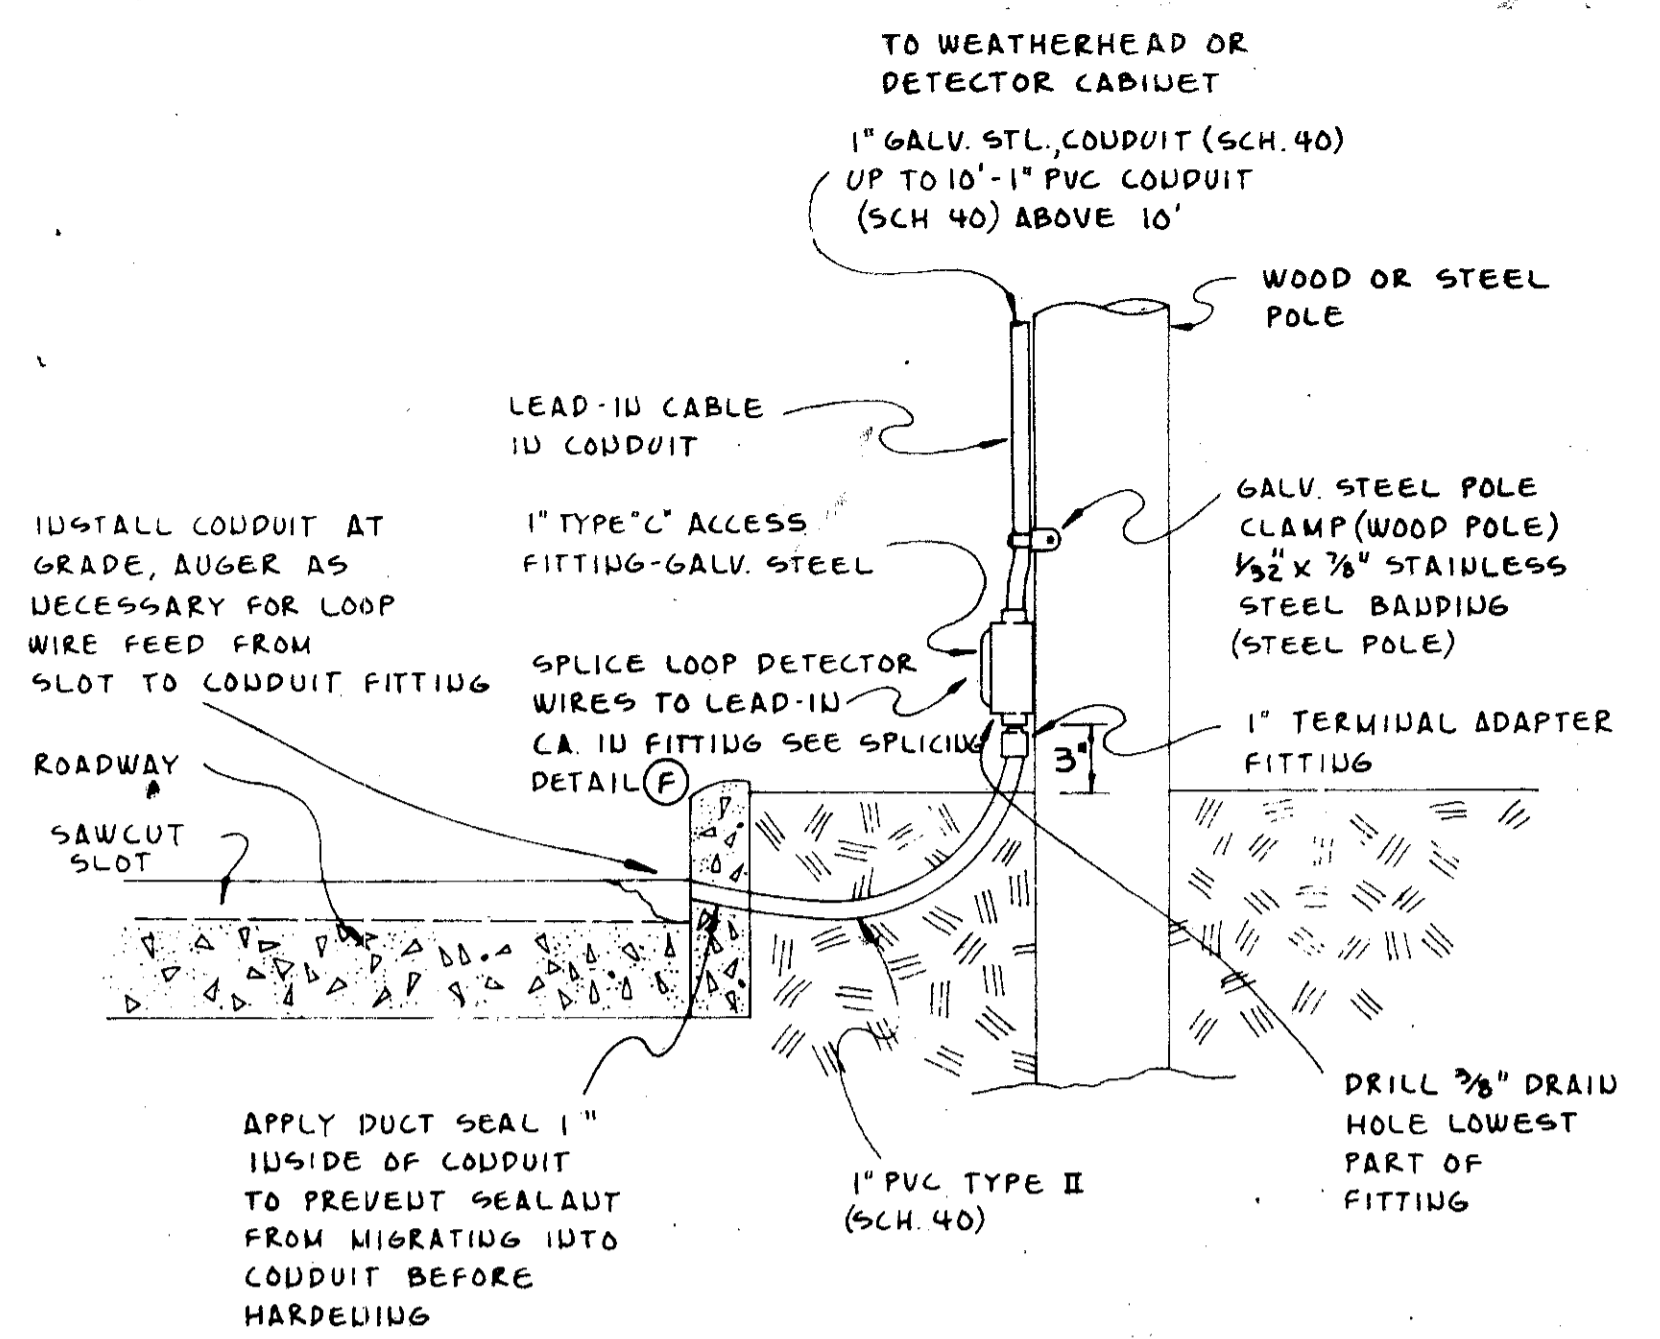 TO WEATHERHEAD OR
DETECTOR CABINET
1" GALV. STL., CONDUIT (SCH. 40)
UP TO 10' - 1" PVC CONDUIT
(SCH 40) ABOVE 10'
WOOD OR STEEL
POLE
LEAD-IN CABLE
IN CONDUIT
GALV. STEEL POLE
CLAMP (WOOD POLE)
1/32" X 7/8" STAINLESS
STEEL BANDING
(STEEL POLE)
1" TYPE "C" ACCESS
FITTING-GALV. STEEL
INSTALL CONDUIT AT
GRADE, AUGER AS
NECESSARY FOR LOOP
WIRE FEED FROM
SLOT TO CONDUIT FITTING
SPLICE LOOP DETECTOR
WIRES TO LEAD-IN
CA. IN FITTING SEE SPLICING
DETAIL F
1" TERMINAL ADAPTER
FITTING
3"
ROADWAY
SAWCUT
SLOT
APPLY DUCT SEAL 1"
INSIDE OF CONDUIT
TO PREVENT SEALANT
FROM MIGRATING INTO
CONDUIT BEFORE
HARDENING
1" PVC TYPE II
(SCH. 40)
DRILL 3/8" DRAIN
HOLE LOWEST
PART OF
FITTING